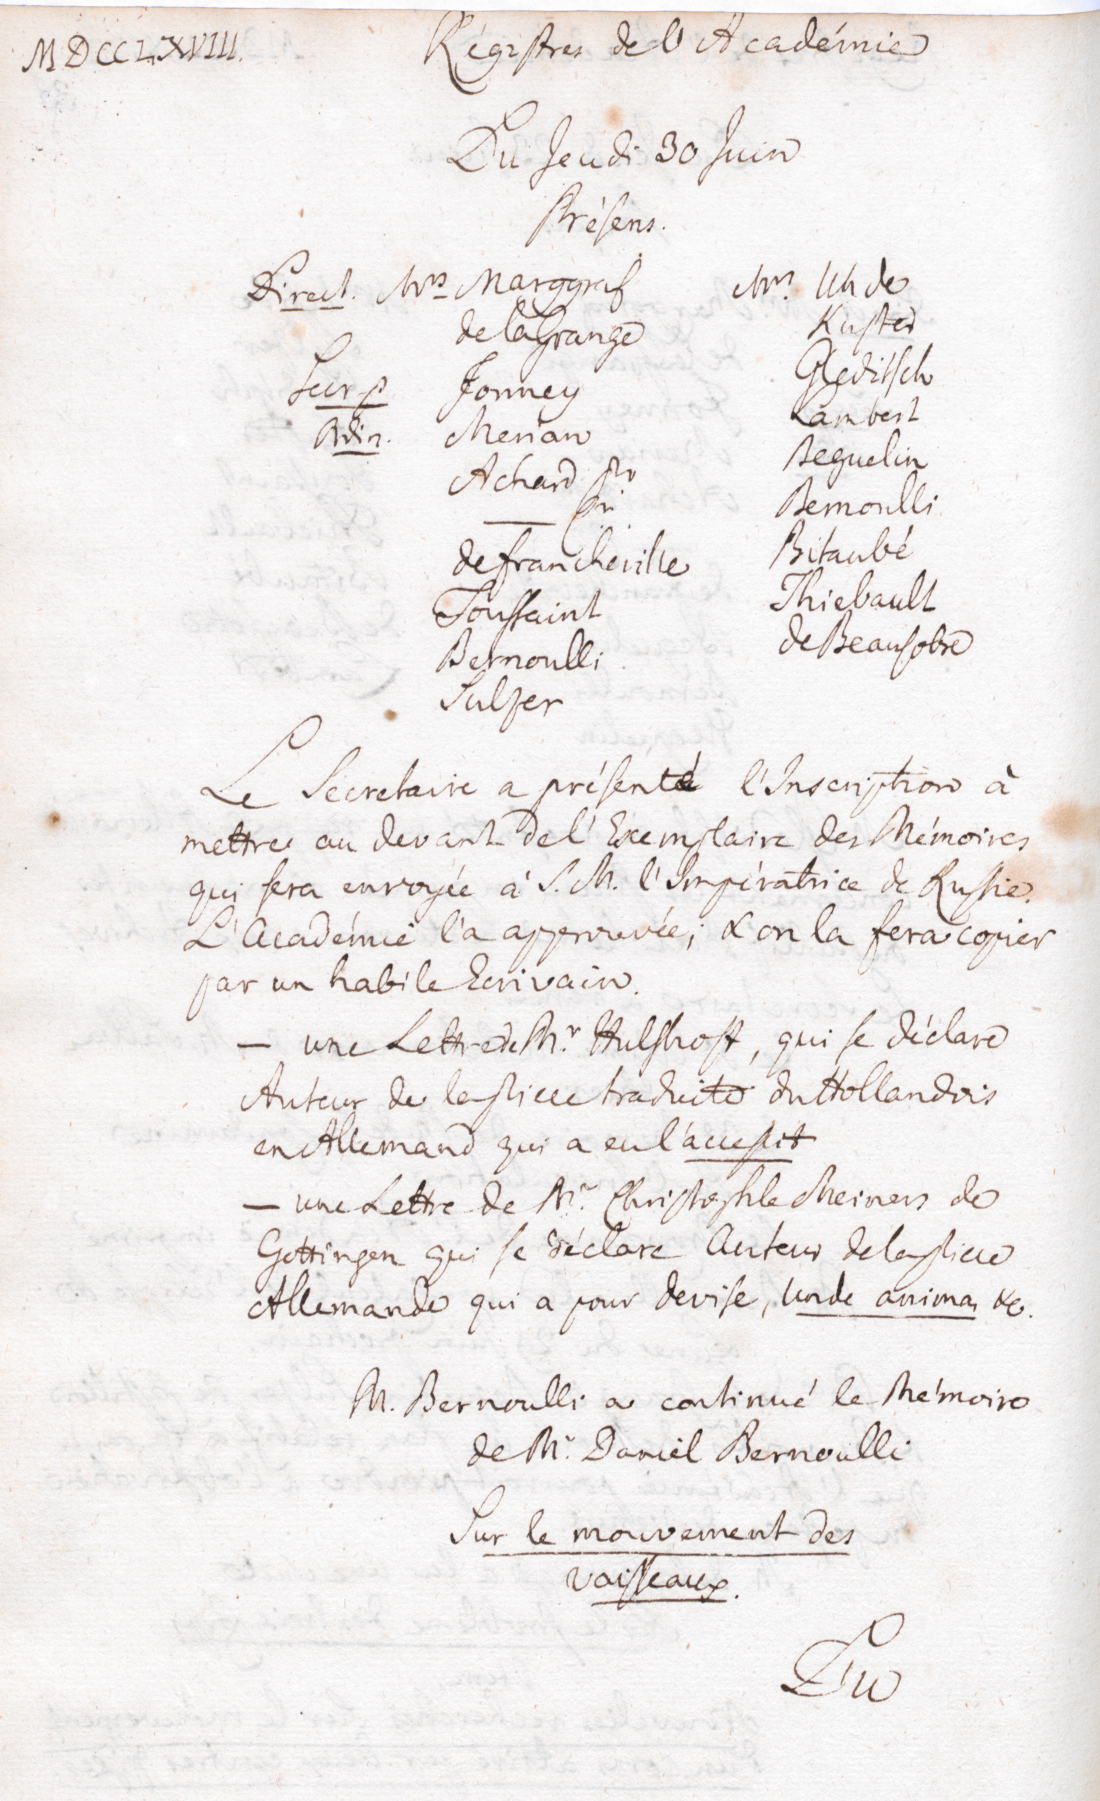 MDCCLXVIII.
Régistres de l'Académie
Du Jeudi 30 Juin
Présens.
Direct. Mrs Marggraf
de la Grange
Secr. p. Formey
Bdin. Merian
Achard pr
— jun
de Francheville
Toussaint
Bernoulli
Sulzer
Mrs. Uhde
Kuster
Gleditsch
Lambert
Beguelin
Bernoulli
Bitaubé
Thiebault
de Beausobre
Le Secretaire a présenté l'Inscription à
mettre au devant de l'Exemplaire des Mémoires
qui sera envoyée à S. M. l'Impératrice de Russie.
L'Académie l'a approuvée; & on la fera copier
par un habile Ecrivain.
— une Lettre de Mr. Hulshoff, qui se déclare
Auteur de la piece traduite du Hollandois
en Allemand qui a eu l'accessit
— une Lettre de Mr. Christophle Meiners de
Gottingen qui se déclare Auteur de la piece
Allemande qui a pour devise, Unde anima &c.
M. Bernoulli a continué le Mémoire
de Mr. Daniel Bernoulli
Sur le mouvement des
vaisseaux.
Du